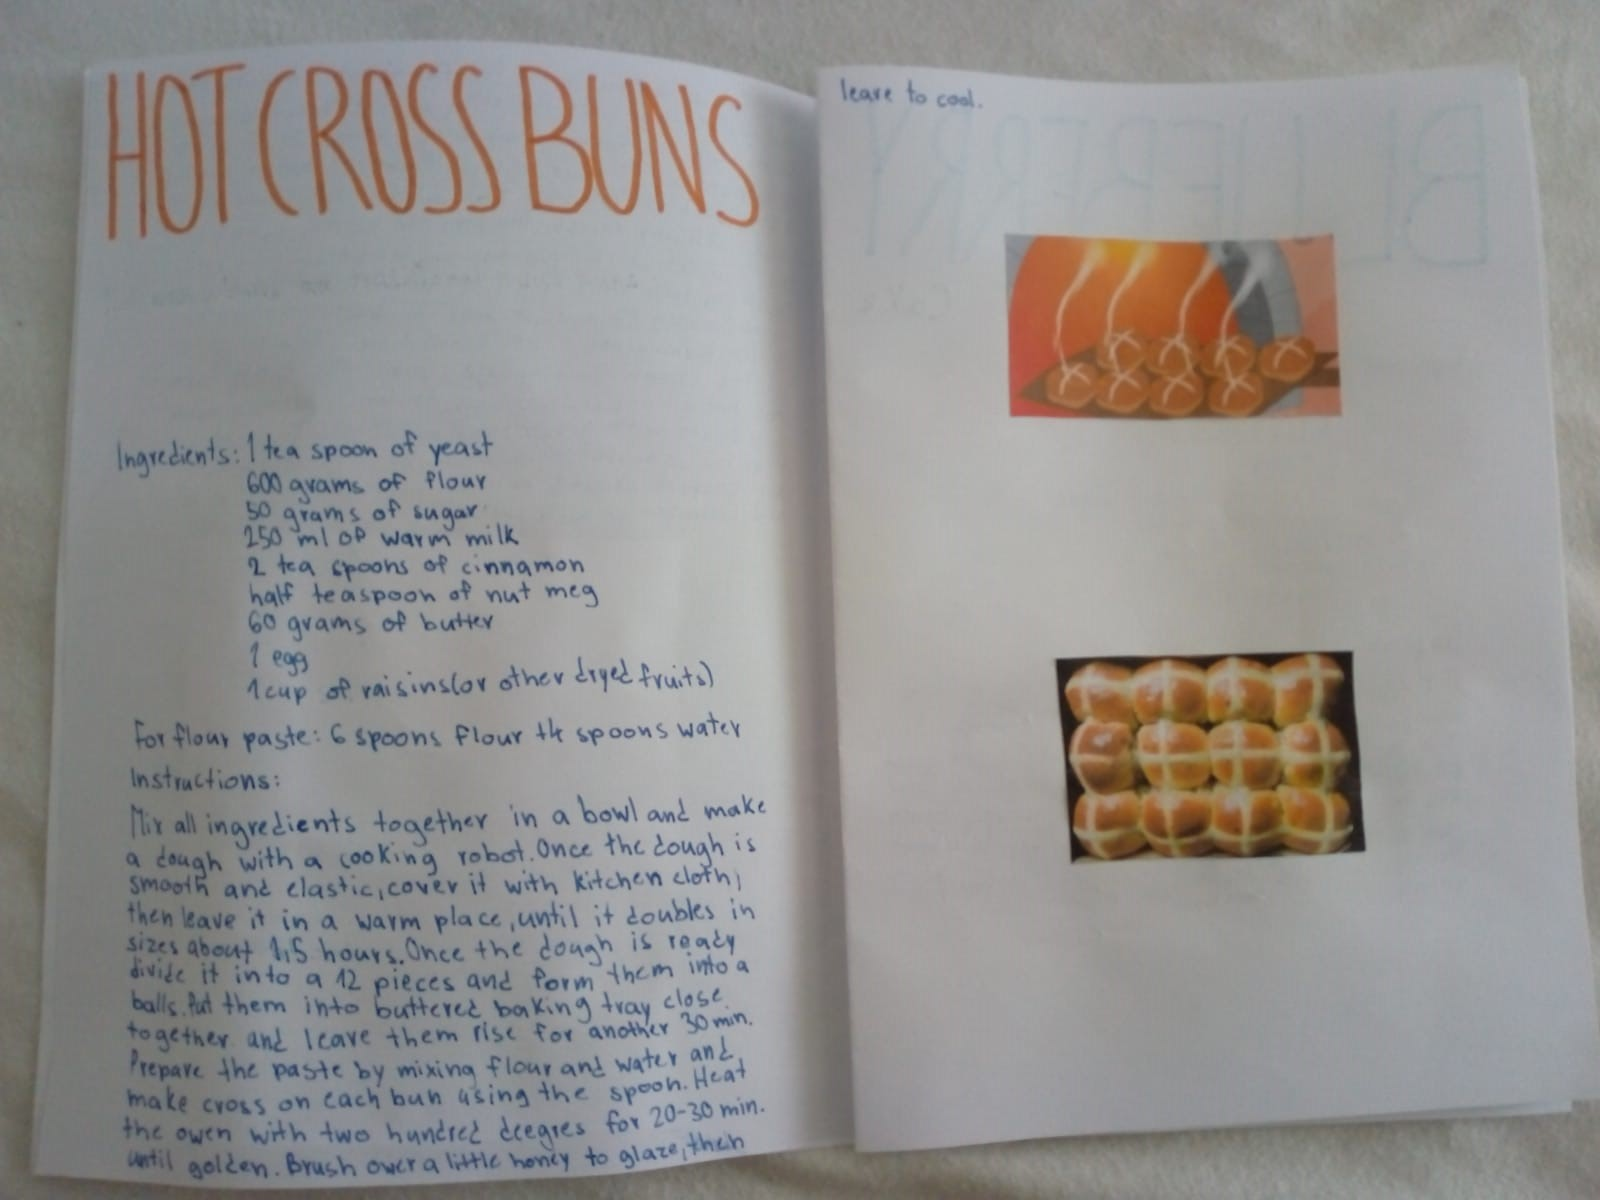 HOT CROSS BUNS
Ingredients: 1 tea spoon of yeast
600 grams of flour
50 grams of sugar
250 ml of warm milk
2 tea spoons of cinnamon
half teaspoon of nut meg
60 grams of butter
1 egg
1 cup of raisins(or other dryed fruits)
For flour paste: 6 spoons flour +4 spoons water
Instructions:
Mix all ingredients together in a bowl and make
a dough with a cooking robot. Once the dough is
smooth and elastic, cover it with kitchen cloth,
then leave it in a warm place, until it doubles in
sizes about 1,5 hours. Once the dough is ready
divide it into a 12 pieces and form them into a
balls. Put them into buttered baking tray close
together and leave them rise for another 30 min.
Prepare the paste by mixing flour and water and
make cross on each bun using the spoon. Heat
the owen with two hundred deegres for 20-30 min.
until golden. Brush ower a little honey to glaze, then
leave to cool.
BLUEBERRY